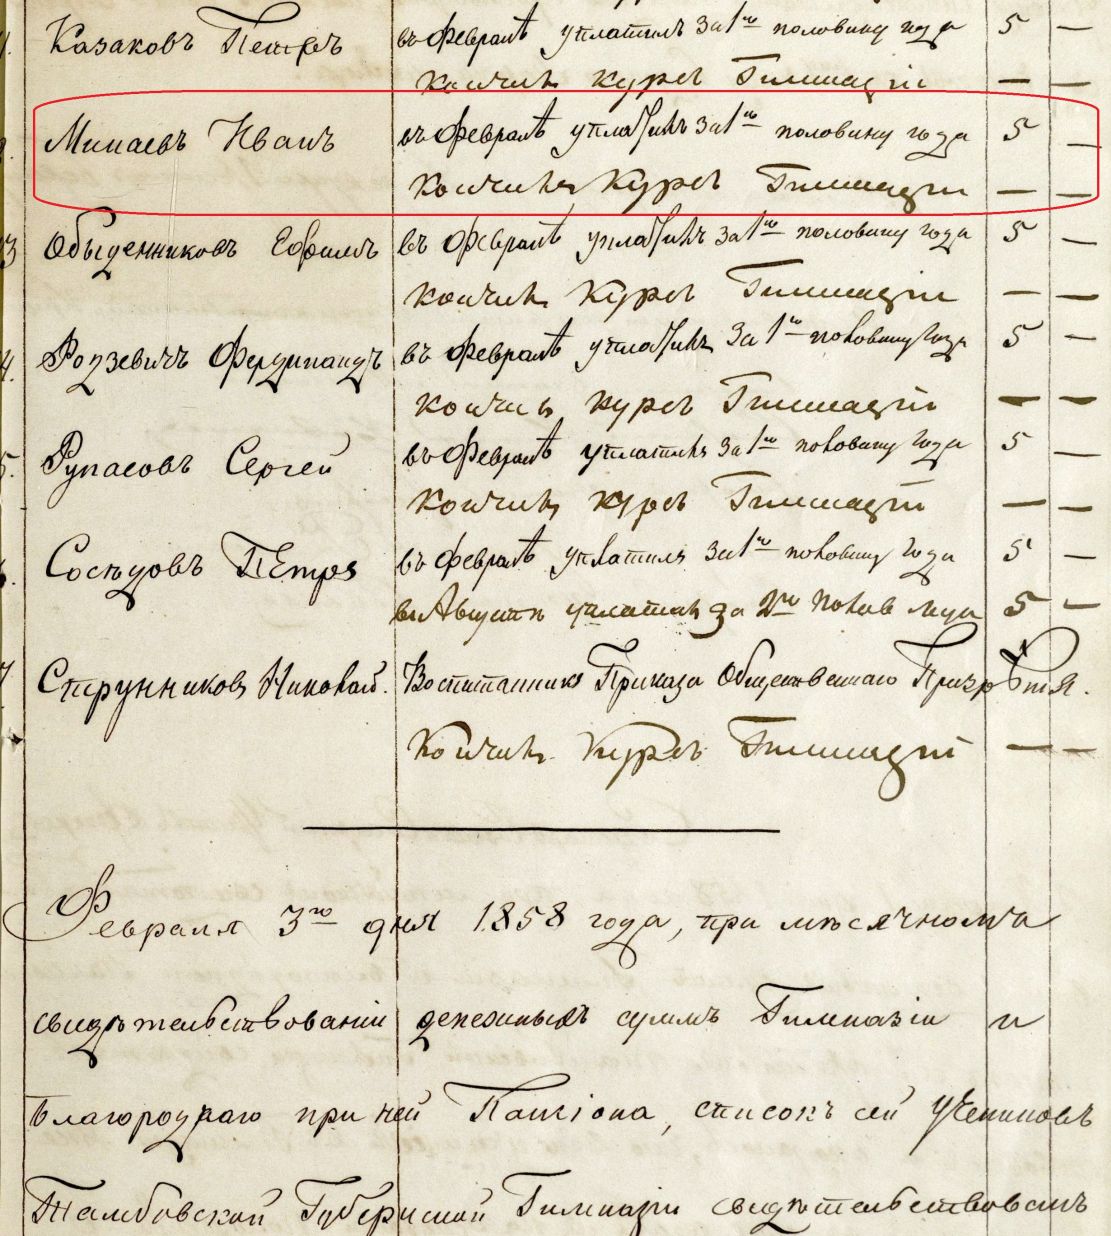 Казаковъ Петръ въ Февралѣ уплатилъ за 1ю половину года 5 —
кончилъ курсъ Гимназіи — —
Минаевъ Иванъ въ Февралѣ уплатилъ за 1ю половину года 5 —
кончилъ Курсъ Гимназіи — —
3 Обыденниковъ Ефимъ въ Февралѣ уплатилъ за 1ю половину года 5 —
кончилъ Курсъ Гимназіи — —
4. Родзевичъ Фердинандъ въ Февралѣ уплатилъ за 1ю половину года 5 —
кончилъ курсъ Гимназіи — —
5. Рупасовъ Сергей въ Февралѣ уплатилъ за 1ю половину года 5 —
Кончилъ курсъ Гимназіи — —
Сосѣдовъ Петръ въ Февралѣ уплатилъ за 1ю половину года 5 —
въ Августѣ уплатилъ за 2ю полов года 5 —
7 Струнниковъ Николай. Воспитанникъ Приказа Общественнаго Призрѣнія.
Кончилъ Курсъ Гимназіи — —
Февраля 3го дня 1858 года, при мѣсячномъ
свидѣтельствованіи денежныхъ суммъ Гимназіи и
благороднаго при ней Пансіона, списокъ сей Учениковъ
Тамбовской Губернской Гимназіи свидѣтельствованъ